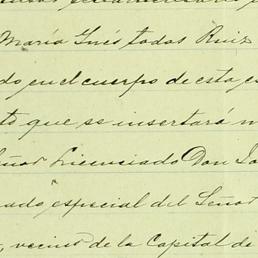 María Inés todas Ruiz
do en el cuerpo de esta es
to que se insertará
eñor Licenciado Don
ado especial del Señor
, vecino de la Capital de